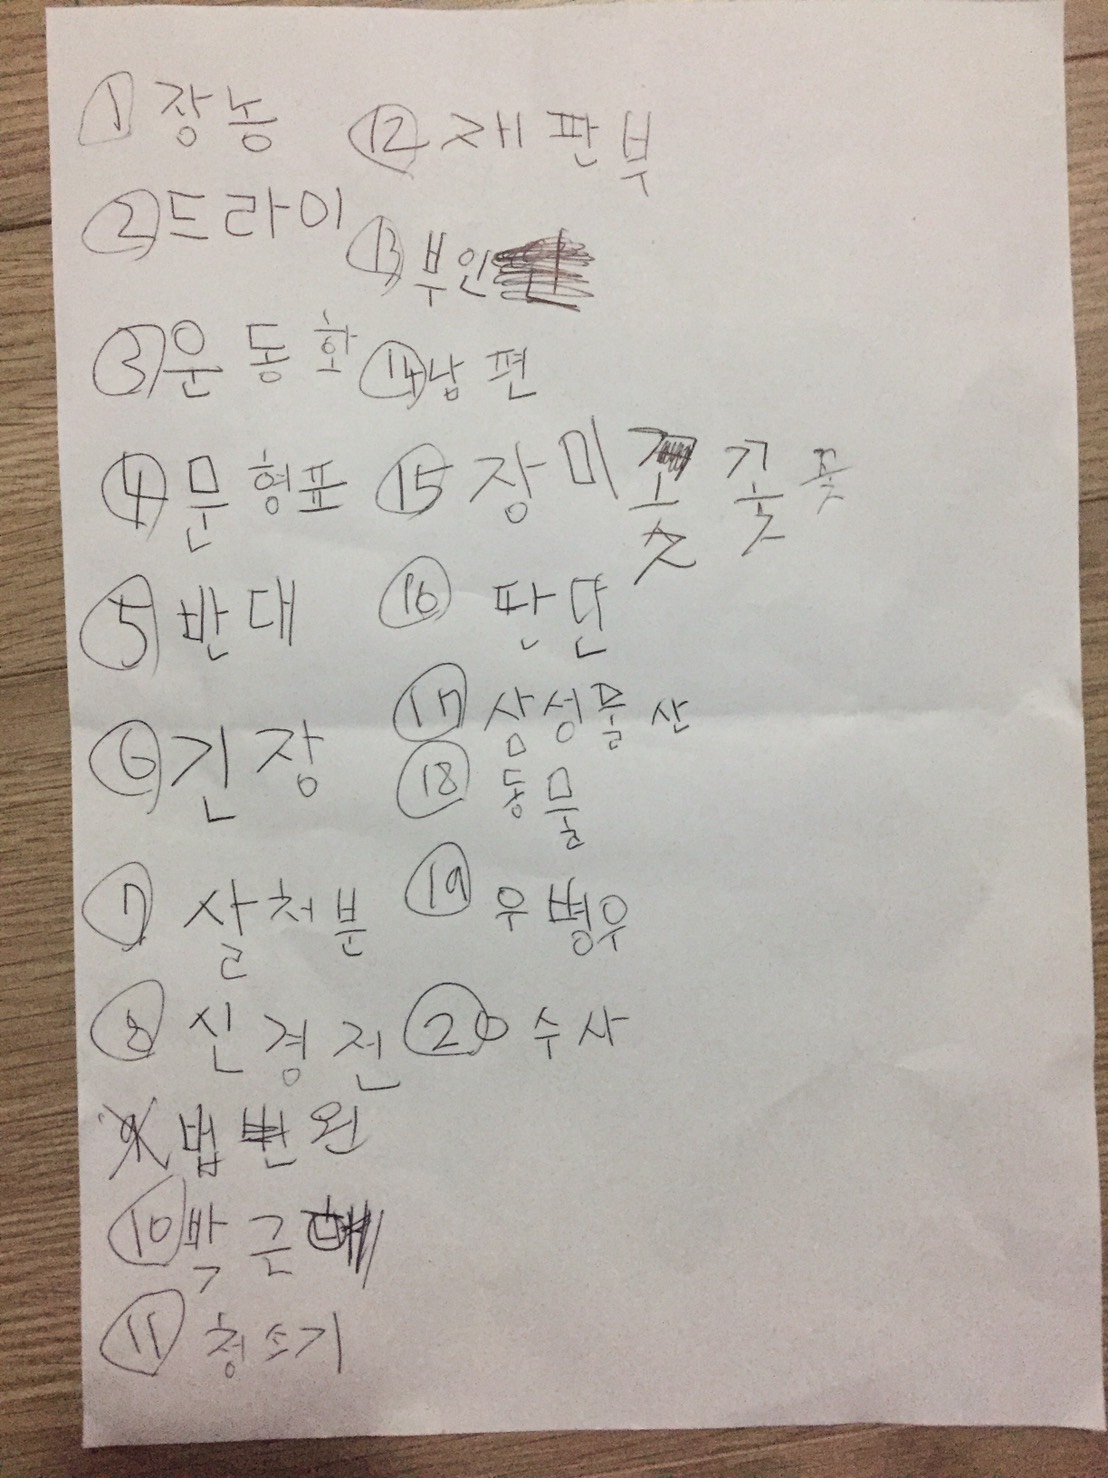 ① 장농
② 드라이
③ 운동화
④ 문형표
⑤ 반대
⑥ 긴장
⑦ 살처분
⑧ 신경전
법 원
⑩ 박근
⑪ 청소기
⑫ 재판부
⑬ 부인
⑭ 남편
⑮ 장미 꽃 꽃
⑯ 판단
⑰ 삼성물산
⑱ 동물
⑲ 우병우
⑳ 수사